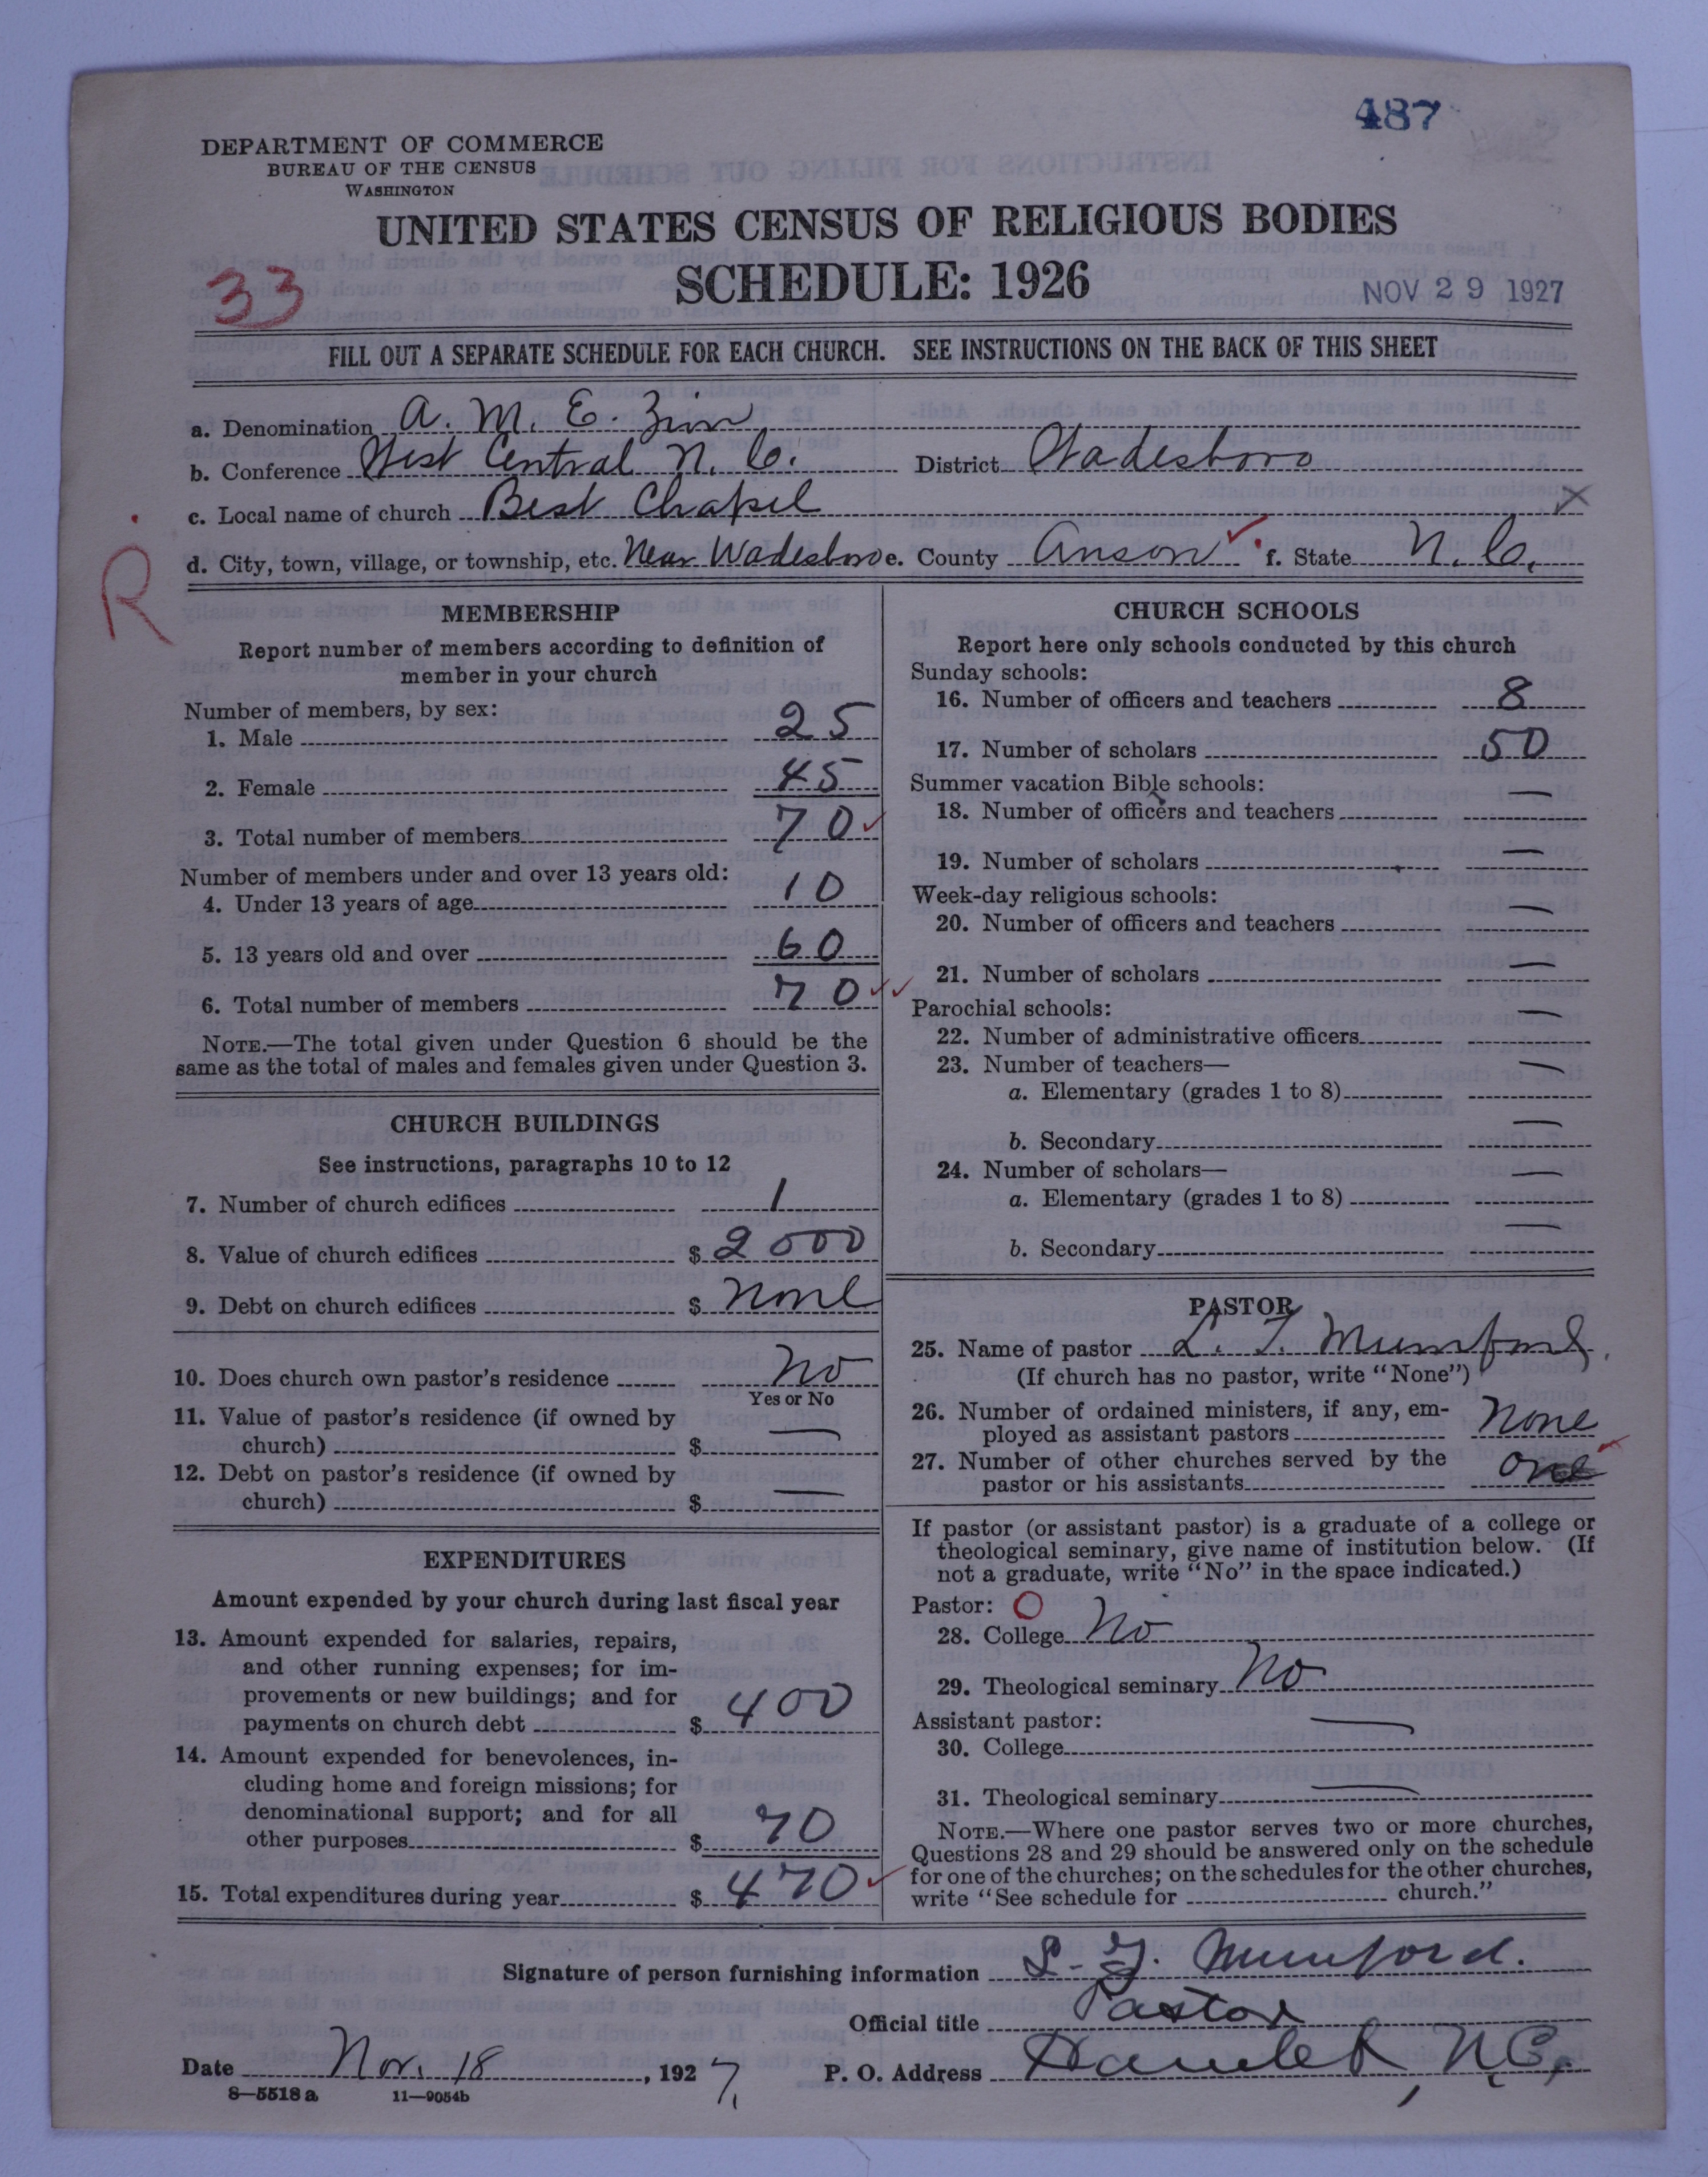 487
DEPARTMENT OF COMMERCE
BUREAU OF THE CENSUS
WASHINGTON
UNITED STATES CENSUS OF RELIGIOUS BODIES
SCHEDULE: 1926
33
NOV 29 1927
FILL OUT A SEPARATE SCHEDULE FOR EACH CHURCH. SEE INSTRUCTIONS ON THE BACK OF THIS SHEET
a. Denomination A. M. E. Zion
b. Conference West Central N. C. District Wadesboro
c. Local name of church Best Chapel
d. City, town, village, or township, etc. Near Wadesboro e. County Anson f. State N. C.
R
MEMBERSHIP
Report number of members according to definition of
member in your church
Number of members, by sex:
1. Male 25
2. Female 45
3. Total number of members 70
Number of members under and over 13 years old:
4. Under 13 years of age 10
5. 13 years old and over 60
6. Total number of members 70
NOTE.—The total given under Question 6 should be the
same as the total of males and females given under Question 3.
CHURCH BUILDINGS
See instructions, paragraphs 10 to 12
7. Number of church edifices 1
8. Value of church edifices $ 2000
9. Debt on church edifices $ None
10. Does church own pastor's residence No
Yes or No
11. Value of pastor's residence (if owned by
church) $ —
12. Debt on pastor's residence (if owned by
church) $ —
EXPENDITURES
Amount expended by your church during last fiscal year
13. Amount expended for salaries, repairs,
and other running expenses; for im-
provements or new buildings; and for
payments on church debt $ 400
14. Amount expended for benevolences, in-
cluding home and foreign missions; for
denominational support; and for all
other purposes $ 70
15. Total expenditures during year $ 470
CHURCH SCHOOLS
Report here only schools conducted by this church
Sunday schools:
16. Number of officers and teachers 8
17. Number of scholars 50
Summer vacation Bible schools:
18. Number of officers and teachers —
19. Number of scholars —
Week-day religious schools:
20. Number of officers and teachers —
21. Number of scholars —
Parochial schools:
22. Number of administrative officers —
23. Number of teachers—
a. Elementary (grades 1 to 8) —
b. Secondary —
24. Number of scholars—
a. Elementary (grades 1 to 8) —
b. Secondary —
PASTOR
25. Name of pastor L. J. Mumford
(If church has no pastor, write "None")
26. Number of ordained ministers, if any, em-
ployed as assistant pastors None
27. Number of other churches served by the
pastor or his assistants one
If pastor (or assistant pastor) is a graduate of a college or
theological seminary, give name of institution below. (If
not a graduate, write "No" in the space indicated.)
Pastor: O
28. College No
29. Theological seminary No
Assistant pastor:
30. College —
31. Theological seminary —
NOTE.—Where one pastor serves two or more churches,
Questions 28 and 29 should be answered only on the schedule
for one of the churches; on the schedules for the other churches,
write "See schedule for church."
Signature of person furnishing information L. J. Mumford.
Official title Pastor
Date Nov. 18, 1927. P. O. Address Hamlet, N.C.
8—5518 a 11—9054b